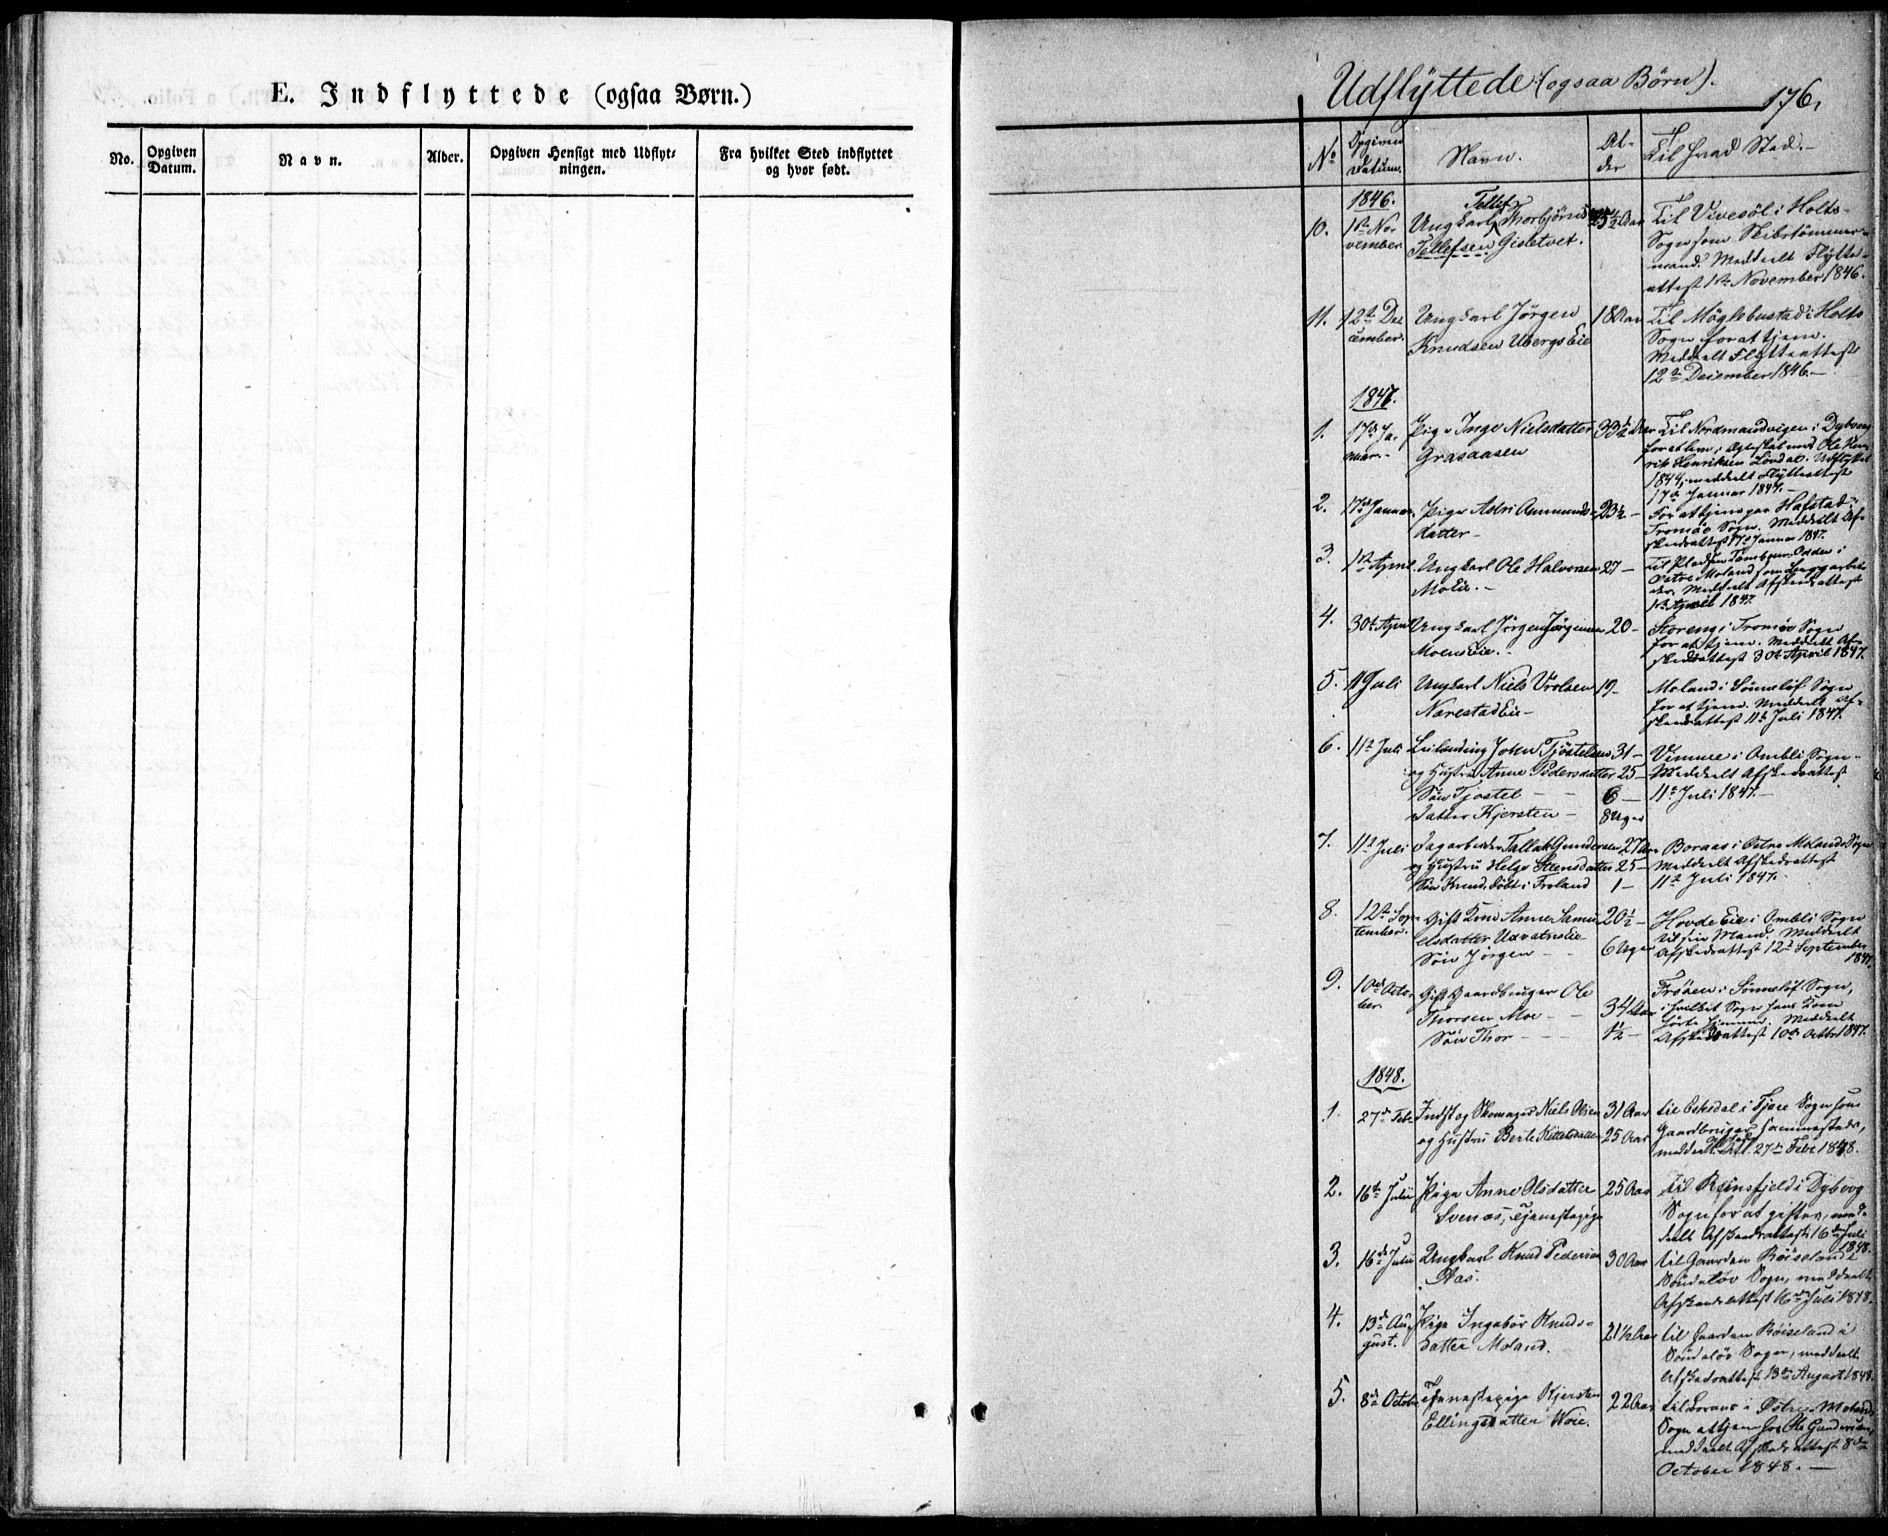 E. Indflyttede (ogsaa Børn.)
No.
Opgiven Datum.
Navn.
Alder.
Opgiven Hensigt med Udflyt-
ningen.
Fra hvilket Sted indflyttet
og hvor født.
Udflyttede (ogsaa Børn).
176.
No
Opgiven Datum.
Navn.
Al-
der
Til hvad Sted.
1846.
10. 1ste No-
vember
Ungkarl Thorbjørn
Tellef
Tellefsen Gisletvet.
Til Vivesøl i Holts
Sogn som Skibstømmer-
mand. Meddeelt Flytte-
attest 1ste November 1846.
11. 12te De-
cember.
Ungkarl Jørgen
Knudsen Ubergs Eie
18 Aar
Til Møglebustad i Holts
Sogn for at tjene.
Meddeelt Flytteattest
12te December 1846.
1847.
1. 17de Ja-
nuar.
Pige Inge Nielsdatter
Grasaasen
33½ Aar
Til Nordmandvigen i Dybvaag
17de Januar 1847.
2. 17de Januar
Pige Astri Aanmunds-
datter
23½
For at tjene paa Hafstad i
Tromøe Sogn. Meddeelt Af-
skedsattest 17de Januar 1847.
3. 1ste April
Ungkarl Ole Halvorsen
Moe Eie.
27
Østre Moland som
Meddeelt Afskedsattest
1ste April 1847.
4. 30te April
Ungkarl Jørgen Jørgensen
Moens Eie.
20
Storeng i Tromøe Sogn
for at tjene. Meddeelt Af-
skedsattest 30te April 1847.
5. 11 Juli
Ungkarl Niels Vrolsen
Narestad Eie
19
Moland i Sønneløf Sogn
for at tjene. Meddeelt Af-
skedsattest 11te Juli 1847.
6. 11te Juli
Leilænding John Tjøstelsen 31
og Hustru Anne Pedersdatter 25
Søn Tjøstel 6
Datter Kjersten 8 Uger
Vimme i Ombli Sogn.
Meddeelt Afskedsattest
11te Juli 1847.
7. 11te Juli
Dagarbeider Tallak Gundersen 27 Aar
og Hustru Helge Steensdatter 25
Søn Knud, født i Froland 1
Boraas i Østre Molands Sogn
Meddeelt Afskedsattest
11te Juli 1847.
8. 12te Sep-
tember.
Gift Kone Anne Samu-
elsdatter Udvatns Eie
Søn Jørgen
20½
6 Uger
Hovde Eie i Ombli Sogn
til sin Mand. Meddeelt
Afskedsattest 12te September
1847.
9. 10de Octo-
ber.
Gift Gaardbruger Ole
Thorsen Moe
Søn Thor
34 Aar
1½
Frøen i Sønneløf Sogn,
i hvilket Sogn hans Kone
hørte hjemme. Meddeelt
Afskedsattest 10de Octbr 1847.
1848.
1. 27de Feb.
Indst og Skomager Niels Olsen
og Hustru Berte Kittelsdatter
31 Aar
25 Aar
til Eskedal i Tjøse Sogn som
Gaardbruger
meddeelt Att. 27de Febr 1848.
2. 16de Julii
Pige Anne Olsdatter
Svenæs, Tjenestepige
25 Aar
til Reinsfjeld i Dybvog
Sogn for at giftes, med-
deelt Afskedsattest 16de Juli
1848.
3. 16de Julii
Ungkarl Knud Pedersen
Aas.
30 Aar
til Gaarden Røiseland i
Søndeløv Sogn, meddeelt
Afskedsattest 16de Juli 1848.
4. 13de Au-
gust.
Pige Ingebør Knuds-
datter Moland.
21½ Aar
til Gaarden Røiseland i
Søndeløv Sogn, meddeelt
Afskedsattest 13de August 1848.
5. 8de October
Tjenestepige Kjersten
Ellingsdatter Woie.
22 Aar
til Boraas i Østre Molands
Sogn at tjene hos Ole Gundersen,
meddeelt Afskedsattest 8de
October 1848.